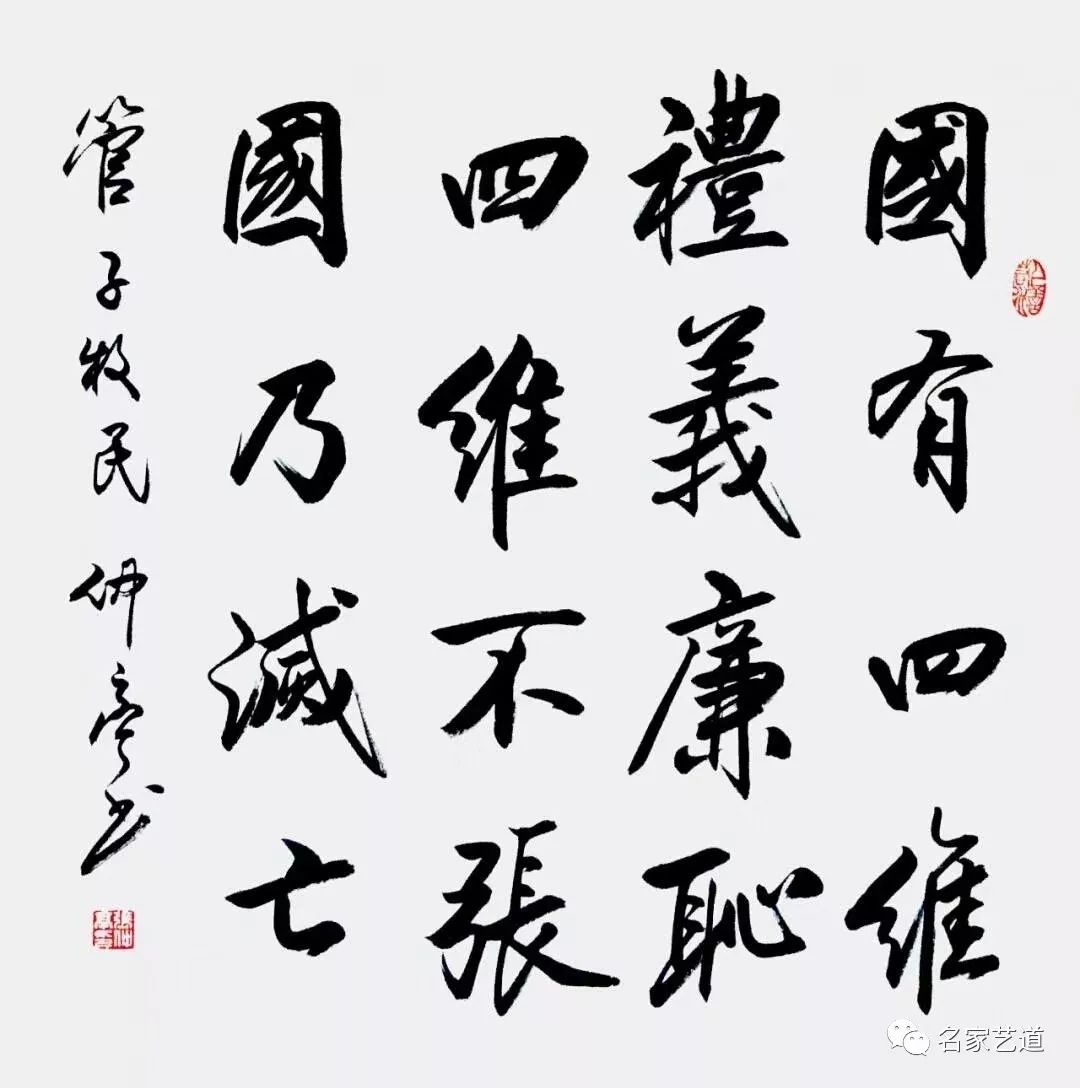 國有四維
禮義廉恥
四維不張
國乃滅亡
管子牧民 仲亭书
名家艺道